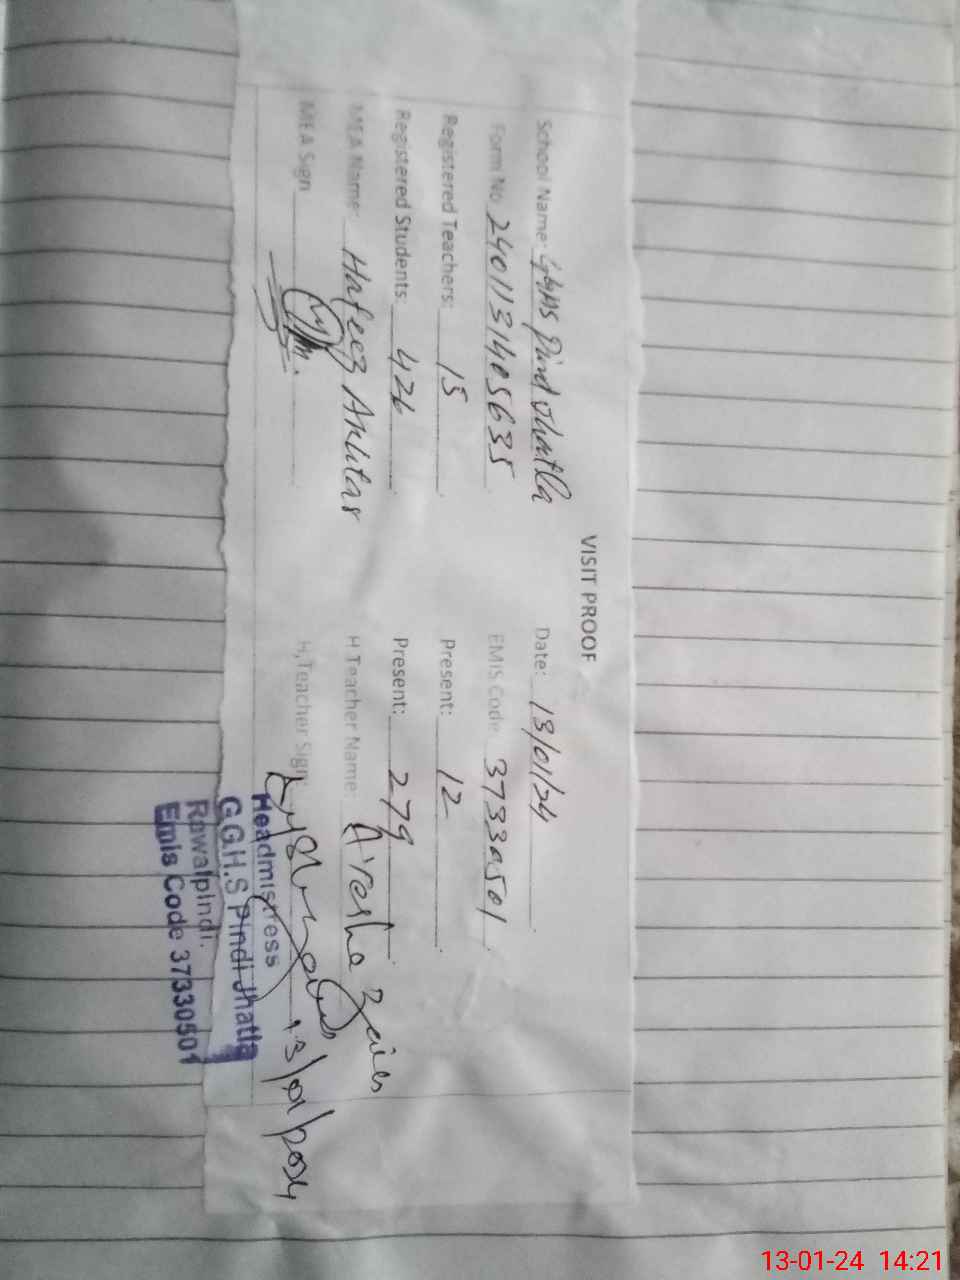 VISIT PROOF
School Name: GGHS Pind Jhatla Date: 13/01/24
Form No 2401131405635 EMIS Code 37330501
Registered Teachers: 15 Present: 12
Registered Students: 426 Present: 279
MEA Name: Hafeez Akhtar H Teacher Name: Ayesha
MEA Sign H,Teacher Sign:
13/01/2024
Headmistress
G.G.H.S Pindi Jhatla
Rawalpindi.
Emis Code 37330501
13-01-24 14:21